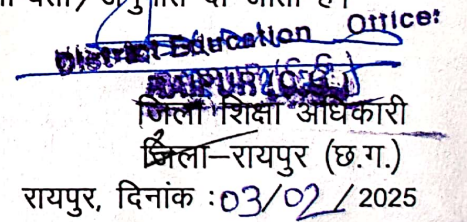 District Education Officer
RAIPUR (C.G.)
जिला शिक्षा अधिकारी
जिला–रायपुर (छ.ग.)
रायपुर, दिनांक :03/02/2025